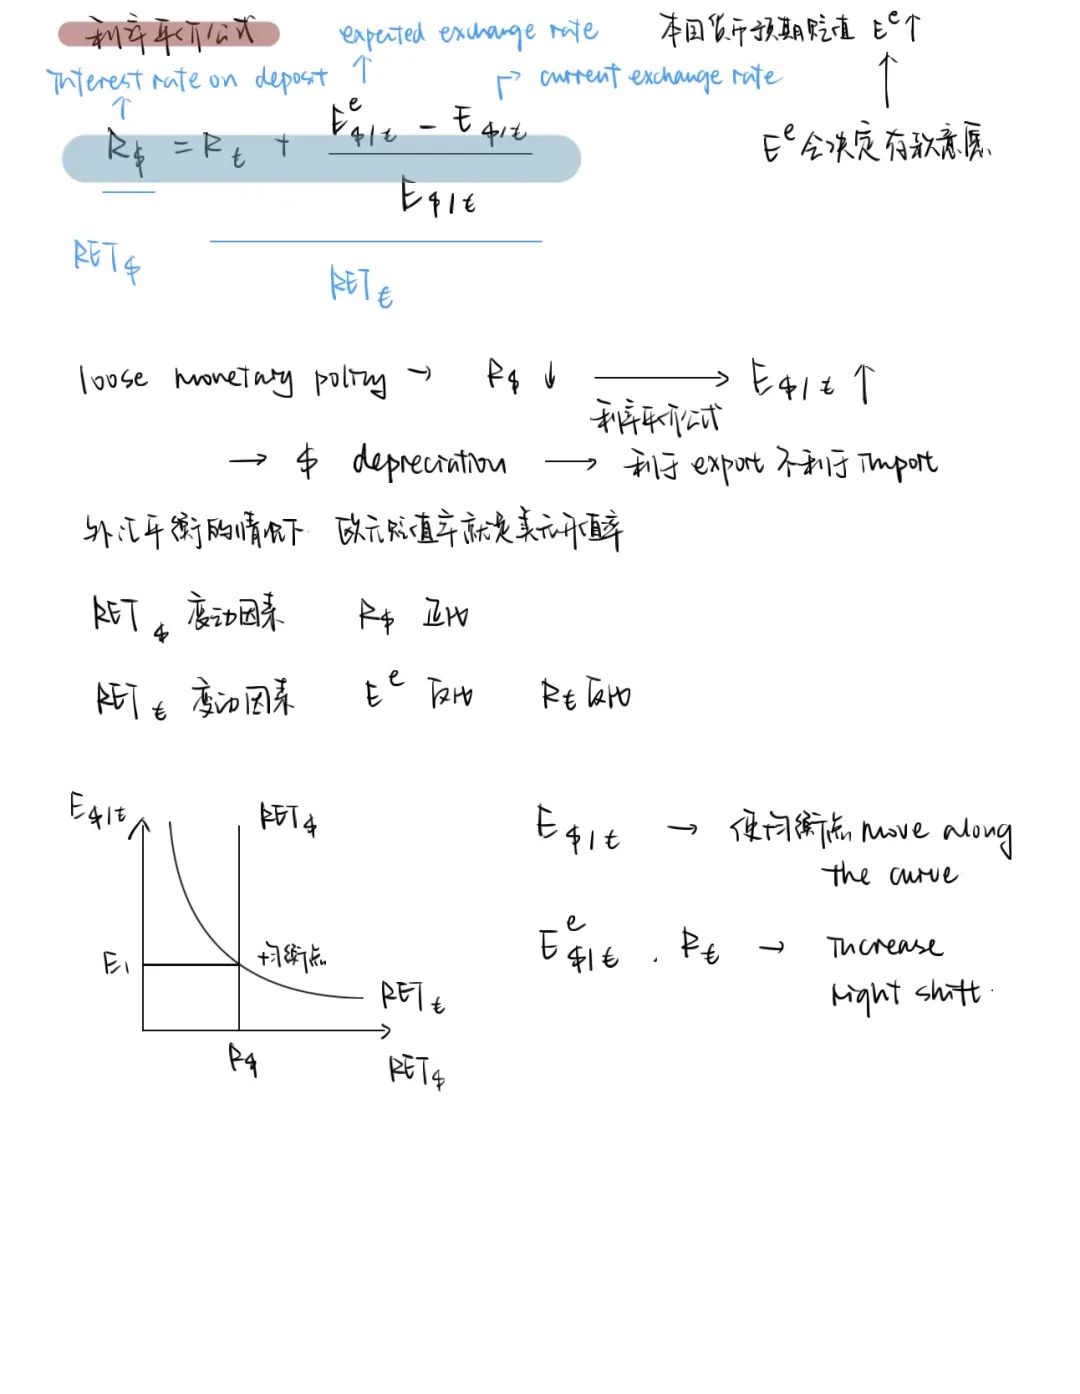 利率平价公式
expected exchange rate
本国货币预期贬值 Eᵉ↑
Interest rate on deposit
current exchange rate
R$ = R€ + (Eᵉ$/€ − E$/€) / E$/€
Eᵉ会决定存款意愿
RET$
RET€
loose monetary policy → R$ ↓ → E$/€ ↑
利率平价公式
→ $ depreciation → 利于 export 不利于 import
外汇平衡的情况下 欧元贬值率就是美元升值率
RET$ 变动因素 R$ 正比
RET€ 变动因素 Eᵉ 反比 R€ 反比
E$/€
RET$
E$/€ → 使均衡点 move along
the curve
E₁
均衡点
RET€
R$
RET$
Eᵉ$/€ . R€ → increase
right shift.